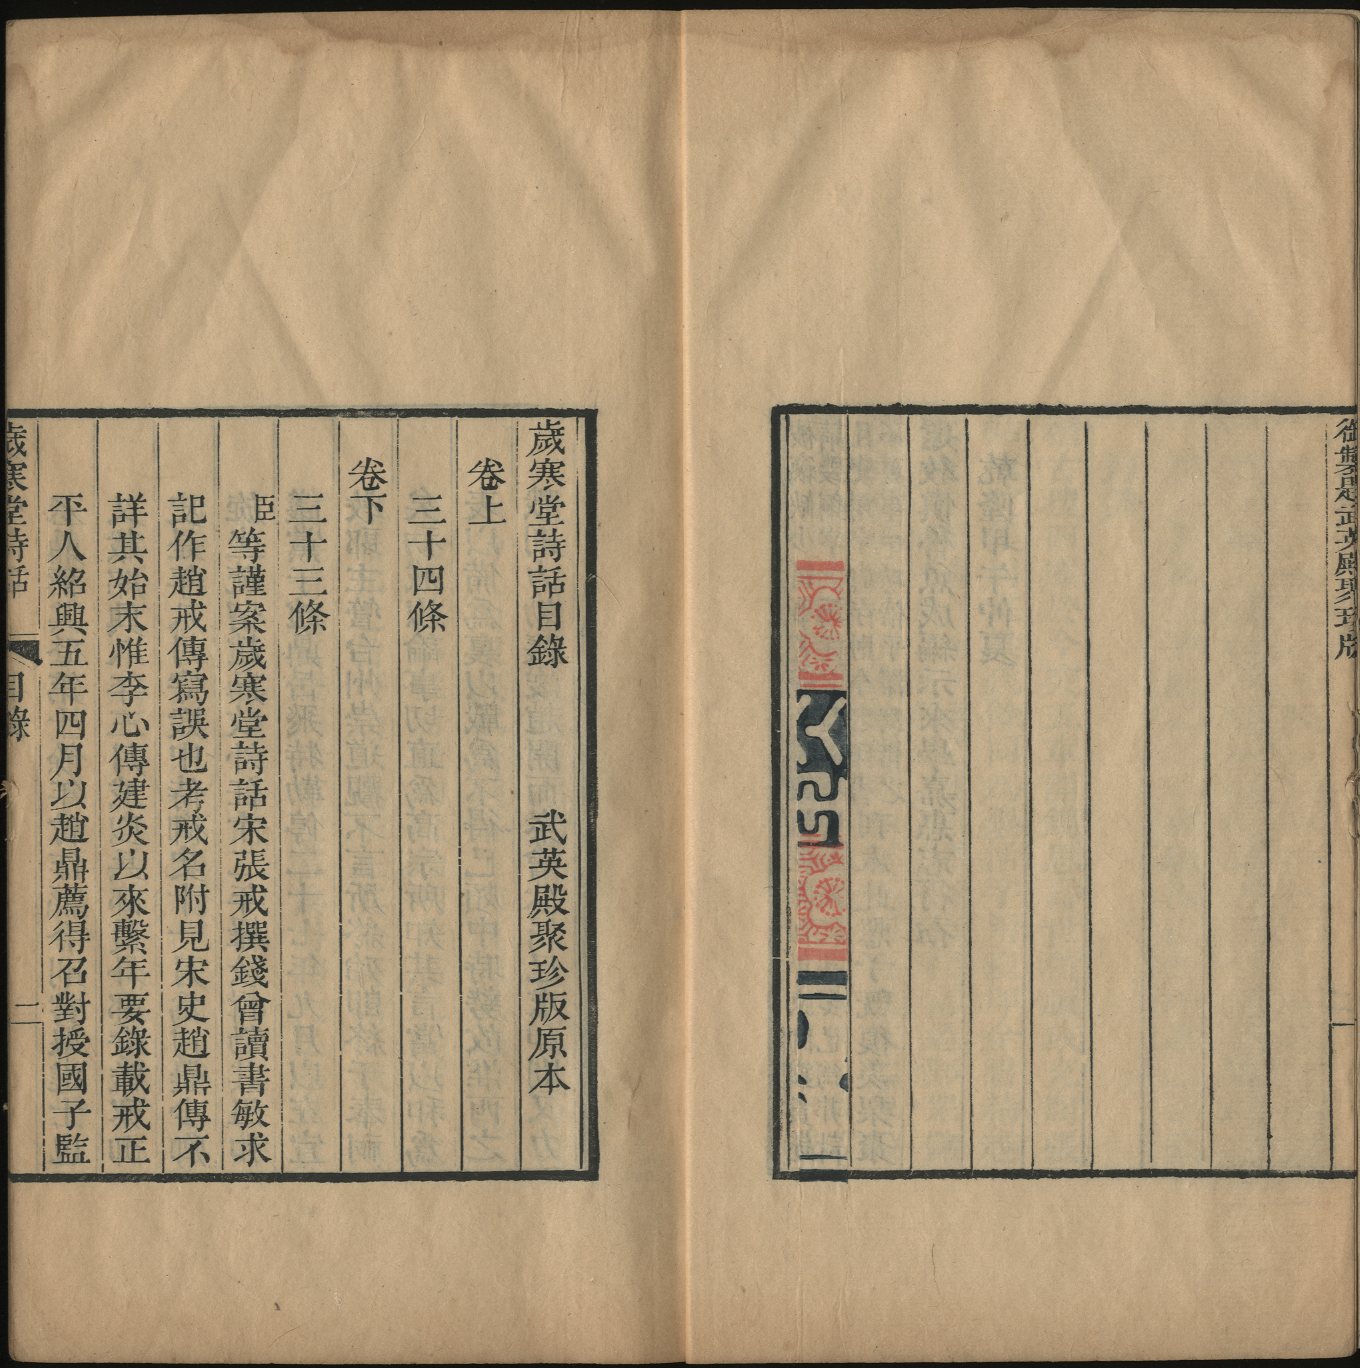 御製題武英殿聚珍版
一
歲寒堂詩話目錄 武英殿聚珍版原本
卷上
三十四條
卷下
三十三條
臣等謹案歲寒堂詩話宋張戒撰錢曾讀書敏求
記作趙戒傳寫誤也考戒名附見宋史趙鼎傳不
詳其始末惟李心傳建炎以來繫年要錄載戒正
平人紹興五年四月以趙鼎薦得召對授國子監
歲寒堂詩話 目錄 一